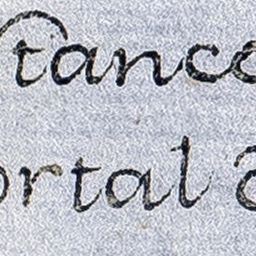 tance
ortal a